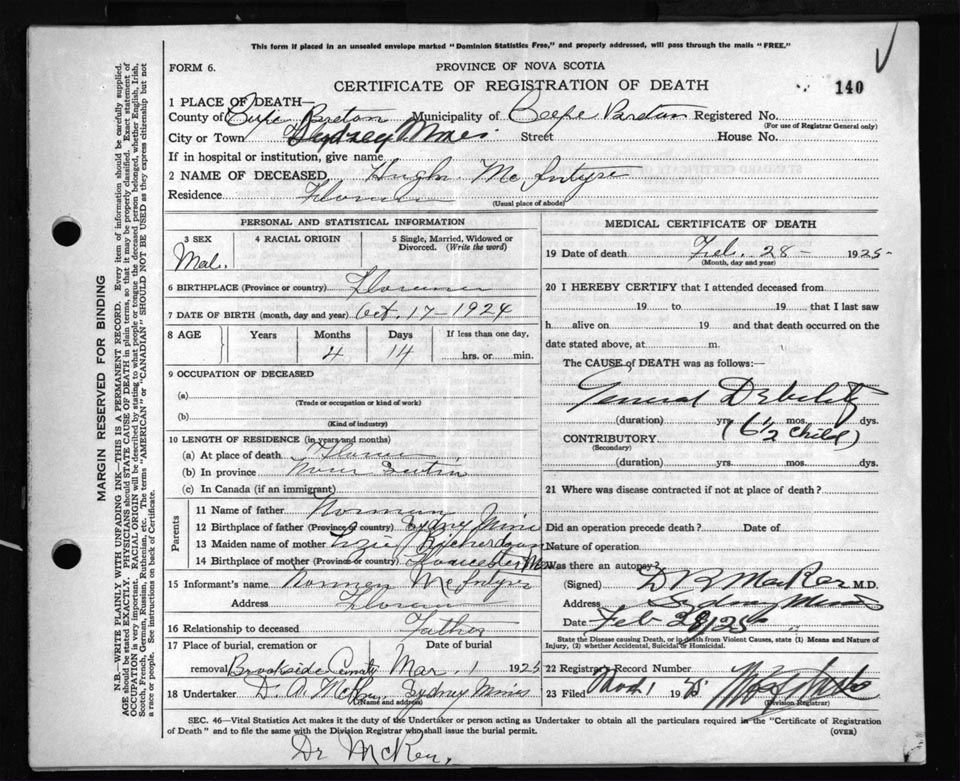 This form if placed in an unsealed envelope marked "Dominion Statistics Free," and properly addressed, will pass through the mails "FREE."
FORM 6.
PROVINCE OF NOVA SCOTIA
CERTIFICATE OF REGISTRATION OF DEATH
140
1 PLACE OF DEATH—
County of Cape Breton Municipality of Cape Breton Registered No.
(For use of Registrar General only)
City or Town Sydney Mines Street House No.
If in hospital or institution, give name
2 NAME OF DECEASED, Hugh McIntyre
Residence Florence
(Usual place of abode)
PERSONAL AND STATISTICAL INFORMATION
3 SEX
Male
4 RACIAL ORIGIN
5 Single, Married, Widowed or Divorced. (Write the word)
6 BIRTHPLACE (Province or country) Florence
7 DATE OF BIRTH (month, day and year) Oct. 17 - 1924
8 AGE Years Months Days If less than one day,
4 14 hrs. or min.
9 OCCUPATION OF DECEASED
(a)
(Trade or occupation or kind of work)
(b)
(Kind of industry)
10 LENGTH OF RESIDENCE (in years and months)
(a) At place of death Florence
(b) In province Nova Scotia
(c) In Canada (if an immigrant)
Parents
11 Name of father Norman
12 Birthplace of father (Province or country) Sydney Mines
13 Maiden name of mother Lizzie Richardson
14 Birthplace of mother (Province or country) Gloucester
15 Informant's name Norman McIntyre
Address Florence
16 Relationship to deceased Father
17 Place of burial, cremation or removal Date of burial
Brookside County Mar. 1 1925
18 Undertaker D. A. McRae, Sydney Mines
(Name and address)
MEDICAL CERTIFICATE OF DEATH
19 Date of death Feb. 28 - 1925 -
(Month, day and year)
20 I HEREBY CERTIFY that I attended deceased from
19 to 19 that I last saw
h alive on 19 and that death occurred on the
date stated above, at m.
The CAUSE of DEATH was as follows:—
General Debility
(duration) yrs. mos. dys.
(6½ child)
CONTRIBUTORY
(Secondary)
(duration) yrs. mos. dys.
21 Where was disease contracted if not at place of death?
Did an operation precede death? Date of
Nature of operation
Was there an autopsy?
(Signed) M.D.
Address Sydney Mines
Date Feb 28/25
State the Disease causing Death, or in death from Violent Causes, state (1) Means and Nature of
Injury, (2) whether Accidental, Suicidal or Homicidal.
22 Registrar's Record Number
23 Filed 19
(Division Registrar)
SEC. 46—Vital Statistics Act makes it the duty of the Undertaker or person acting as Undertaker to obtain all the particulars required in the "Certificate of Registration
of Death" and to file the same with the Division Registrar who shall issue the burial permit.
(OVER)
MARGIN RESERVED FOR BINDING
N.B.—WRITE PLAINLY WITH UNFADING INK—THIS IS A PERMANENT RECORD. Every item of information should be carefully supplied.
AGE should be stated EXACTLY. PHYSICIANS should STATE CAUSE OF DEATH in plain terms, so that it may be properly classified. Exact statement of
OCCUPATION is very important. RACIAL ORIGIN will be described by stating to what people or tongue the deceased person belonged, whether English, Irish,
Scotch, French, German, Russian, Ruthenian, etc. The terms "AMERICAN" or "CANADIAN" SHOULD NOT BE USED as they express citizenship but not
a race or people. See instructions on back of Certificate.